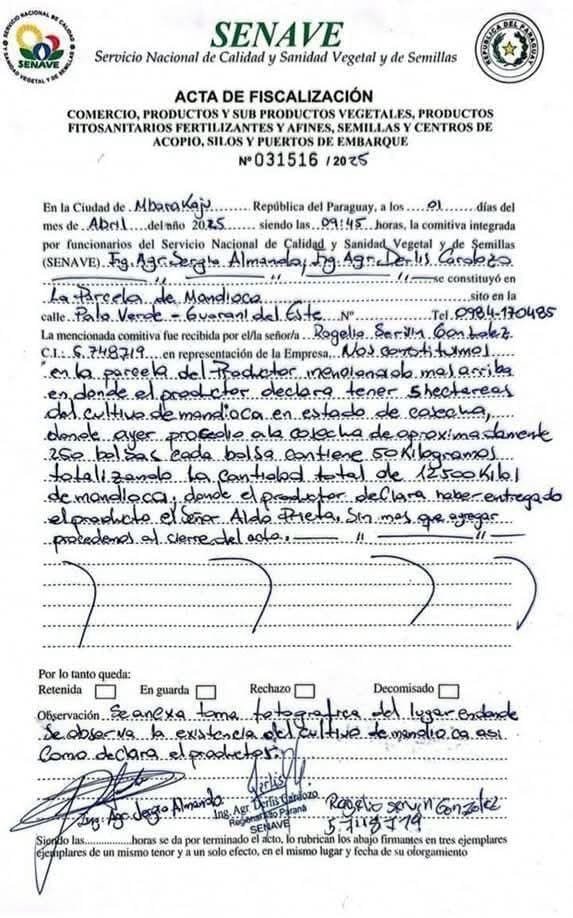 SERVICIO NACIONAL DE CALIDAD Y SANIDAD VEGETAL Y DE SEMILLAS
SENAVE
SENAVE
Servicio Nacional de Calidad y Sanidad Vegetal y de Semillas
REPUBLICA DEL PARAGUAY
ACTA DE FISCALIZACIÓN
COMERCIO, PRODUCTOS Y SUB PRODUCTOS VEGETALES, PRODUCTOS
FITOSANITARIOS FERTILIZANTES Y AFINES, SEMILLAS Y CENTROS DE
ACOPIO, SILOS Y PUERTOS DE EMBARQUE
Nº 031516 / 2025
En la Ciudad de Mbarakaju República del Paraguay, a los 01 días del
mes de Abril del año 2025 siendo las 09:45 horas, la comitiva integrada
por funcionarios del Servicio Nacional de Calidad y Sanidad Vegetal y de Semillas
(SENAVE) Ing. Agr. Sergio Almanda, Ing. Agr. Derlis Cardozo
se constituyó en
La Parcela de Mandioca sito en la
calle Palo Verde - Guarani del Este Nº Tel 0984-170485
La mencionada comitiva fue recibida por el/la señor/a Rogelio Servin Gonzalez
C.I.: 5.748719 en representación de la Empresa, Nos constituimos
en la parcela del Productor mencionado mas arriba
en donde el productor declara tener 5 hectareas
del cultivo de mandioca en estado de cosecha,
donde ayer procedio a la cosecha de aproximadamente
250 bolsas cada bolsa contiene 50 Kilogramos
totalizando la cantidad total de 12500 Kilo
de mandioca, donde el productor declara haber entregado
el producto el señor Aldo Prieta, Sin mas que agregar
procedemos al cierre del acto.
Por lo tanto queda:
Retenida En guarda Rechazo Decomisado
Observación Se anexa toma fotografica del lugar en donde
se observa la existencia del cultivo de mandioca asi
como declara el productor.
Ing. Agr. Sergio Almanda
Derlis
Ing. Agr. Derlis Cardozo
Regional Alto Paraná
SENAVE
Rogelio Servin Gonzalez
5748719
Siendo las horas se da por terminado el acto, lo rubrican los abajo firmantes en tres ejemplares
ejemplares de un mismo tenor y a un solo efecto, en el mismo lugar y fecha de su otorgamiento